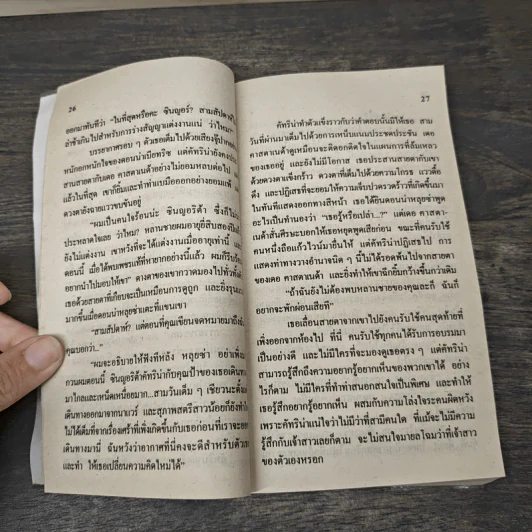 26
ออกมาทันทีว่า “ในที่สุดหรือคะ ซินญอร์? สามสัปดาห์
ล่าช้าเกินไปสำหรับการร่างสัญญาแต่งงานแน่ ว่าไหม?
บรรยากาศรอบ ๆ ตัวเธอเต็มไปด้วยเสียง
หนักอกหนักใจของดอนน่าเบียทริซ แต่คัทรีน่ายังคง
สานสายตากับเดอ คาสตาเนล้าอย่างไม่ยอมหลบต่อไป
แล้วในที่สุด เขาก็ยิ้มและทำท่าเบมือออกอย่างยอมแพ้
ดวงตายังฉายแววขบขันอยู่
“ผมเป็นคนใจร้อนน่ะ ซินญอริต้า ซึ่งก็ไม่
ประหลาดใจเลย ว่าไหม? หลานชายผมอายุยี่สิบสองปี
ยังไม่แต่งงาน เขาหวังที่จะได้แต่งงานเมื่ออายุเท่านี้ และ
ตอนนี้ เมื่อได้พบเพชรแท้ที่หายากอย่างนี้แล้ว ผมก็รีบร้อน
อยากนำไปมอบให้เขา” ดวงตาของเขากวาดมองไปทั่วทั้งตัว
เธอด้วยสายตาที่เกือบจะเป็นเหมือนการดูถูก และยิ่งรุนแรง
มากขึ้นเมื่อดอนน่าหลุยซ่าแตะที่แขนเขา
“สามสัปดาห์? แต่ตอนที่คุณเขียนจดหมายมาถึง
คุณบอกว่า...”
“ผมจะอธิบายให้ฟังทีหลัง หลุยซ่า อย่าเพิ่ง
กวนผมตอนนี้ ซินญอริต้าคัทรีน่ากับคุณป้าของเธอเดินทาง
มาไกลและเหน็ดเหนื่อยมาก...สามวันเต็ม ๆ เชียวนะตั้งแต่
เดินทางออกมาจากนาแวร์ และสุภาพสตรีสาวน้อยก็ยังทำใจ
ไม่ได้เต็มที่จากเรื่องเศร้าที่เพิ่งเกิดขึ้นกับเธอก่อนที่เราจะออก
เดินทางมานี่ ฉันหวังว่าอากาศที่นี่คงจะดีสำหรับตัวเธอ
และทำ ให้เธอเปลี่ยนความคิดใหม่ได้”
27
คัทรีน่าทำตัวแข็งราวกับว่าคำตอบนั้นมีให้เธอ สาม
วันที่ผ่านมาเต็มไปด้วยการเหน็บแนมประชดประชัน เดอ
คาสตาเนล้าดูเหมือนจะติดอกติดใจในแผนการที่ล้มเหลว
ของเธออยู่ และยังไม่มีโอกาส เธอประสานสายตากับเขา
ด้วยดวงตาแข็งกร้าว ดวงตาที่เต็มไปด้วยความโกรธ แววดื้อ
ดึง และปฏิเสธที่จะยอมให้ความเจ็บปวดรวดร้าวที่เกิดขึ้นมา
ในทันทีแสดงออกทางสีหน้า เธอได้ยินดอนน่าหลุยซ่าพูด
อะไรเป็นทำนองว่า “เธอรู้หรือเปล่า...?” แต่เดอ คาสตา-
เนล้าสั่นศีรษะบอกให้เธอหยุดพูดเสียก่อน ขณะที่คนรับใช้
คนหนึ่งถือแก้วไวน์มายื่นให้ แต่คัทรีน่าปฏิเสธไป การ
แสดงท่าทางวางอำนาจนิด ๆ นี้ไม่ได้รอดพ้นไปจากสายตา
ของเดอ คาสตาเนล้า และยิ่งทำให้เขาฉีกยิ้มกว้างขึ้นกว่าเดิม
“ถ้าฉันยังไม่ต้องพบหลานชายของคุณละก็ ฉันก็
อยากจะพักผ่อนเสียที”
เธอเลื่อนสายตาจากเขาไปยังคนรับใช้คนสุดท้ายที่
เพิ่งออกจากห้องไป ที่นี่ คนรับใช้ทุกคนได้รับการอบรมมา
เป็นอย่างดี และไม่มีใครที่จะมองดูเธอตรง ๆ แต่คัทรีน่า
สามารถรู้สึกถึงความอยากรู้อยากเห็นของพวกเขาได้ อย่าง
ไรก็ตาม ไม่มีใครที่ทำท่าสนอกสนใจเป็นพิเศษ และทำให้
เธอรู้สึกอยากรู้อยากเห็น ผสมกับความโล่งใจระคนผิดหวัง
เพราะคัทรีน่าแน่ใจว่าไม่มีว่าที่สามีคนใด ที่แม้จะไม่มีความ
รู้สึกกับเจ้าสาวเลยก็ตาม จะไม่สนใจมายลโฉมว่าที่เจ้าสาว
ของตัวเองหรอก